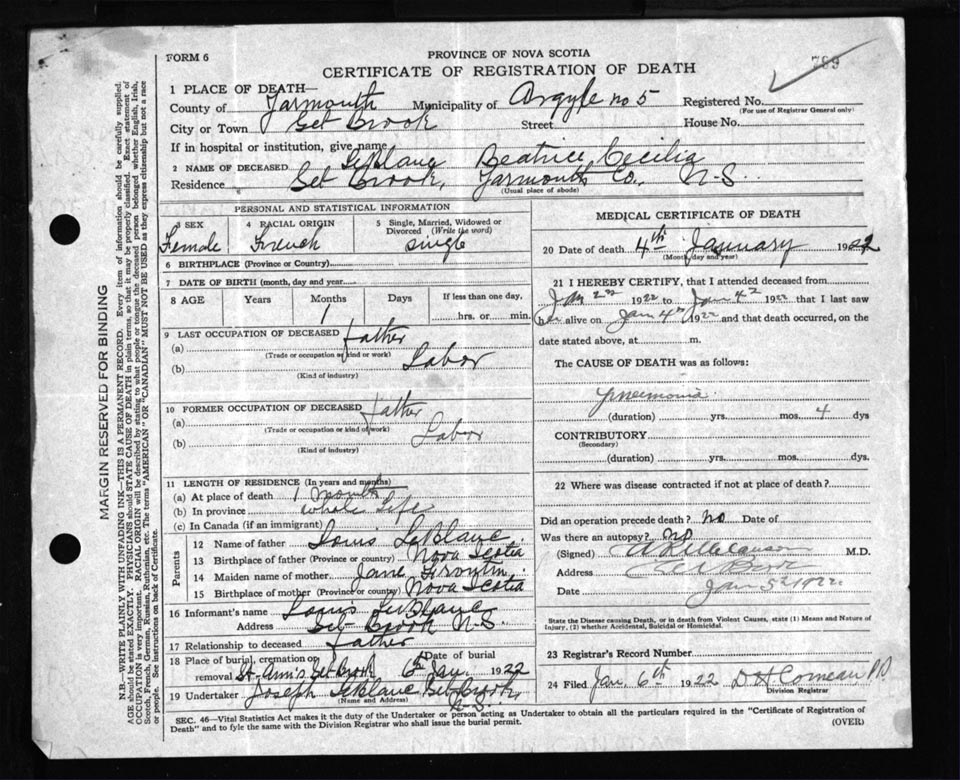 FORM 6
PROVINCE OF NOVA SCOTIA
CERTIFICATE OF REGISTRATION OF DEATH
789
1 PLACE OF DEATH—
County of Yarmouth Municipality of Argyle no 5 Registered No.
(For use of Registrar General only)
City or Town Eel Brook Street House No.
If in hospital or institution, give name
2 NAME OF DECEASED LeBlanc Beatrice Cecilia
Residence Eel Brook, Yarmouth Co., N-S.
(Usual place of abode)
PERSONAL AND STATISTICAL INFORMATION
3 SEX Female
4 RACIAL ORIGIN French
5 Single, Married, Widowed or Divorced (Write the word) single
6 BIRTHPLACE (Province or Country)
7 DATE OF BIRTH (month, day and year)
8 AGE Years Months Days If less than one day,
1 hrs. or min.
9 LAST OCCUPATION OF DECEASED Father
(a)
(Trade or occupation or kind or work)
(b) Labor
(Kind of industry)
10 FORMER OCCUPATION OF DECEASED Father
(a)
(Trade or occupation or kind or work)
(b) Labor
(Kind of industry)
11 LENGTH OF RESIDENCE (In years and months)
(a) At place of death 1 month
(b) In province whole Life
(c) In Canada (if an immigrant)
Parents
12 Name of father Louis LeBlanc
13 Birthplace of father (Province or country) Nova Scotia
14 Maiden name of mother Jane
15 Birthplace of mother (Province or country) Nova Scotia
16 Informant's name Louis LeBlanc
Address Eel Brook N.S.
17 Relationship to deceased Father
18 Place of burial, cremation or removal St. Ann's Eel Brook Date of burial 6th Jan. 1922
19 Undertaker Joseph LeBlanc Eel Brook, N-S.
(Name and Address)
MEDICAL CERTIFICATE OF DEATH
20 Date of death 4th January 1922
(Month, day and year)
21 I HEREBY CERTIFY, that I attended deceased from
Jan 2nd 1922 to Jan 4th 1922 that I last saw
her alive on Jan 4th 1922 and that death occurred, on
date stated above, at m.
The CAUSE OF DEATH was as follows:
pneumonia
(duration) yrs. mos. 4 dys
CONTRIBUTORY
(Secondary)
(duration) yrs. mos. dys.
22 Where was disease contracted if not at place of death?
Did an operation precede death? no Date of
Was there an autopsy? no
(Signed) M.D.
Address Eel Brook
Date Jan 5th 1922
State the Disease causing Death, or in death from Violent Causes, state (1) Means and Nature of
Injury, (2) whether Accidental, Suicidal or Homicidal.
23 Registrar's Record Number
24 Filed Jan. 6th 1922 D H Comeau
Division Registrar
SEC. 46—Vital Statistics Act makes it the duty of the Undertaker or person acting as Undertaker to obtain all the particulars required in the "Certificate of Registration of
Death" and to fyle the same with the Division Registrar who shall issue the burial permit.
(OVER)
MARGIN RESERVED FOR BINDING
N.B.—WRITE PLAINLY WITH UNFADING INK—THIS IS A PERMANENT RECORD. Every item of information should be carefully supplied.
AGE should be stated EXACTLY. PHYSICIANS should STATE CAUSE OF DEATH in plain terms, so that it may be properly classified. Exact statement of
OCCUPATION is very important. RACIAL ORIGIN will be described by stating to what people or tongue the deceased person belonged whether English, Irish,
Scotch, French, German, Russian, Ruthenian, etc. The terms "AMERICAN" OR "CANADIAN" MUST NOT BE USED as they express citizenship but not a race
or people. See instructions on back of Certificate.